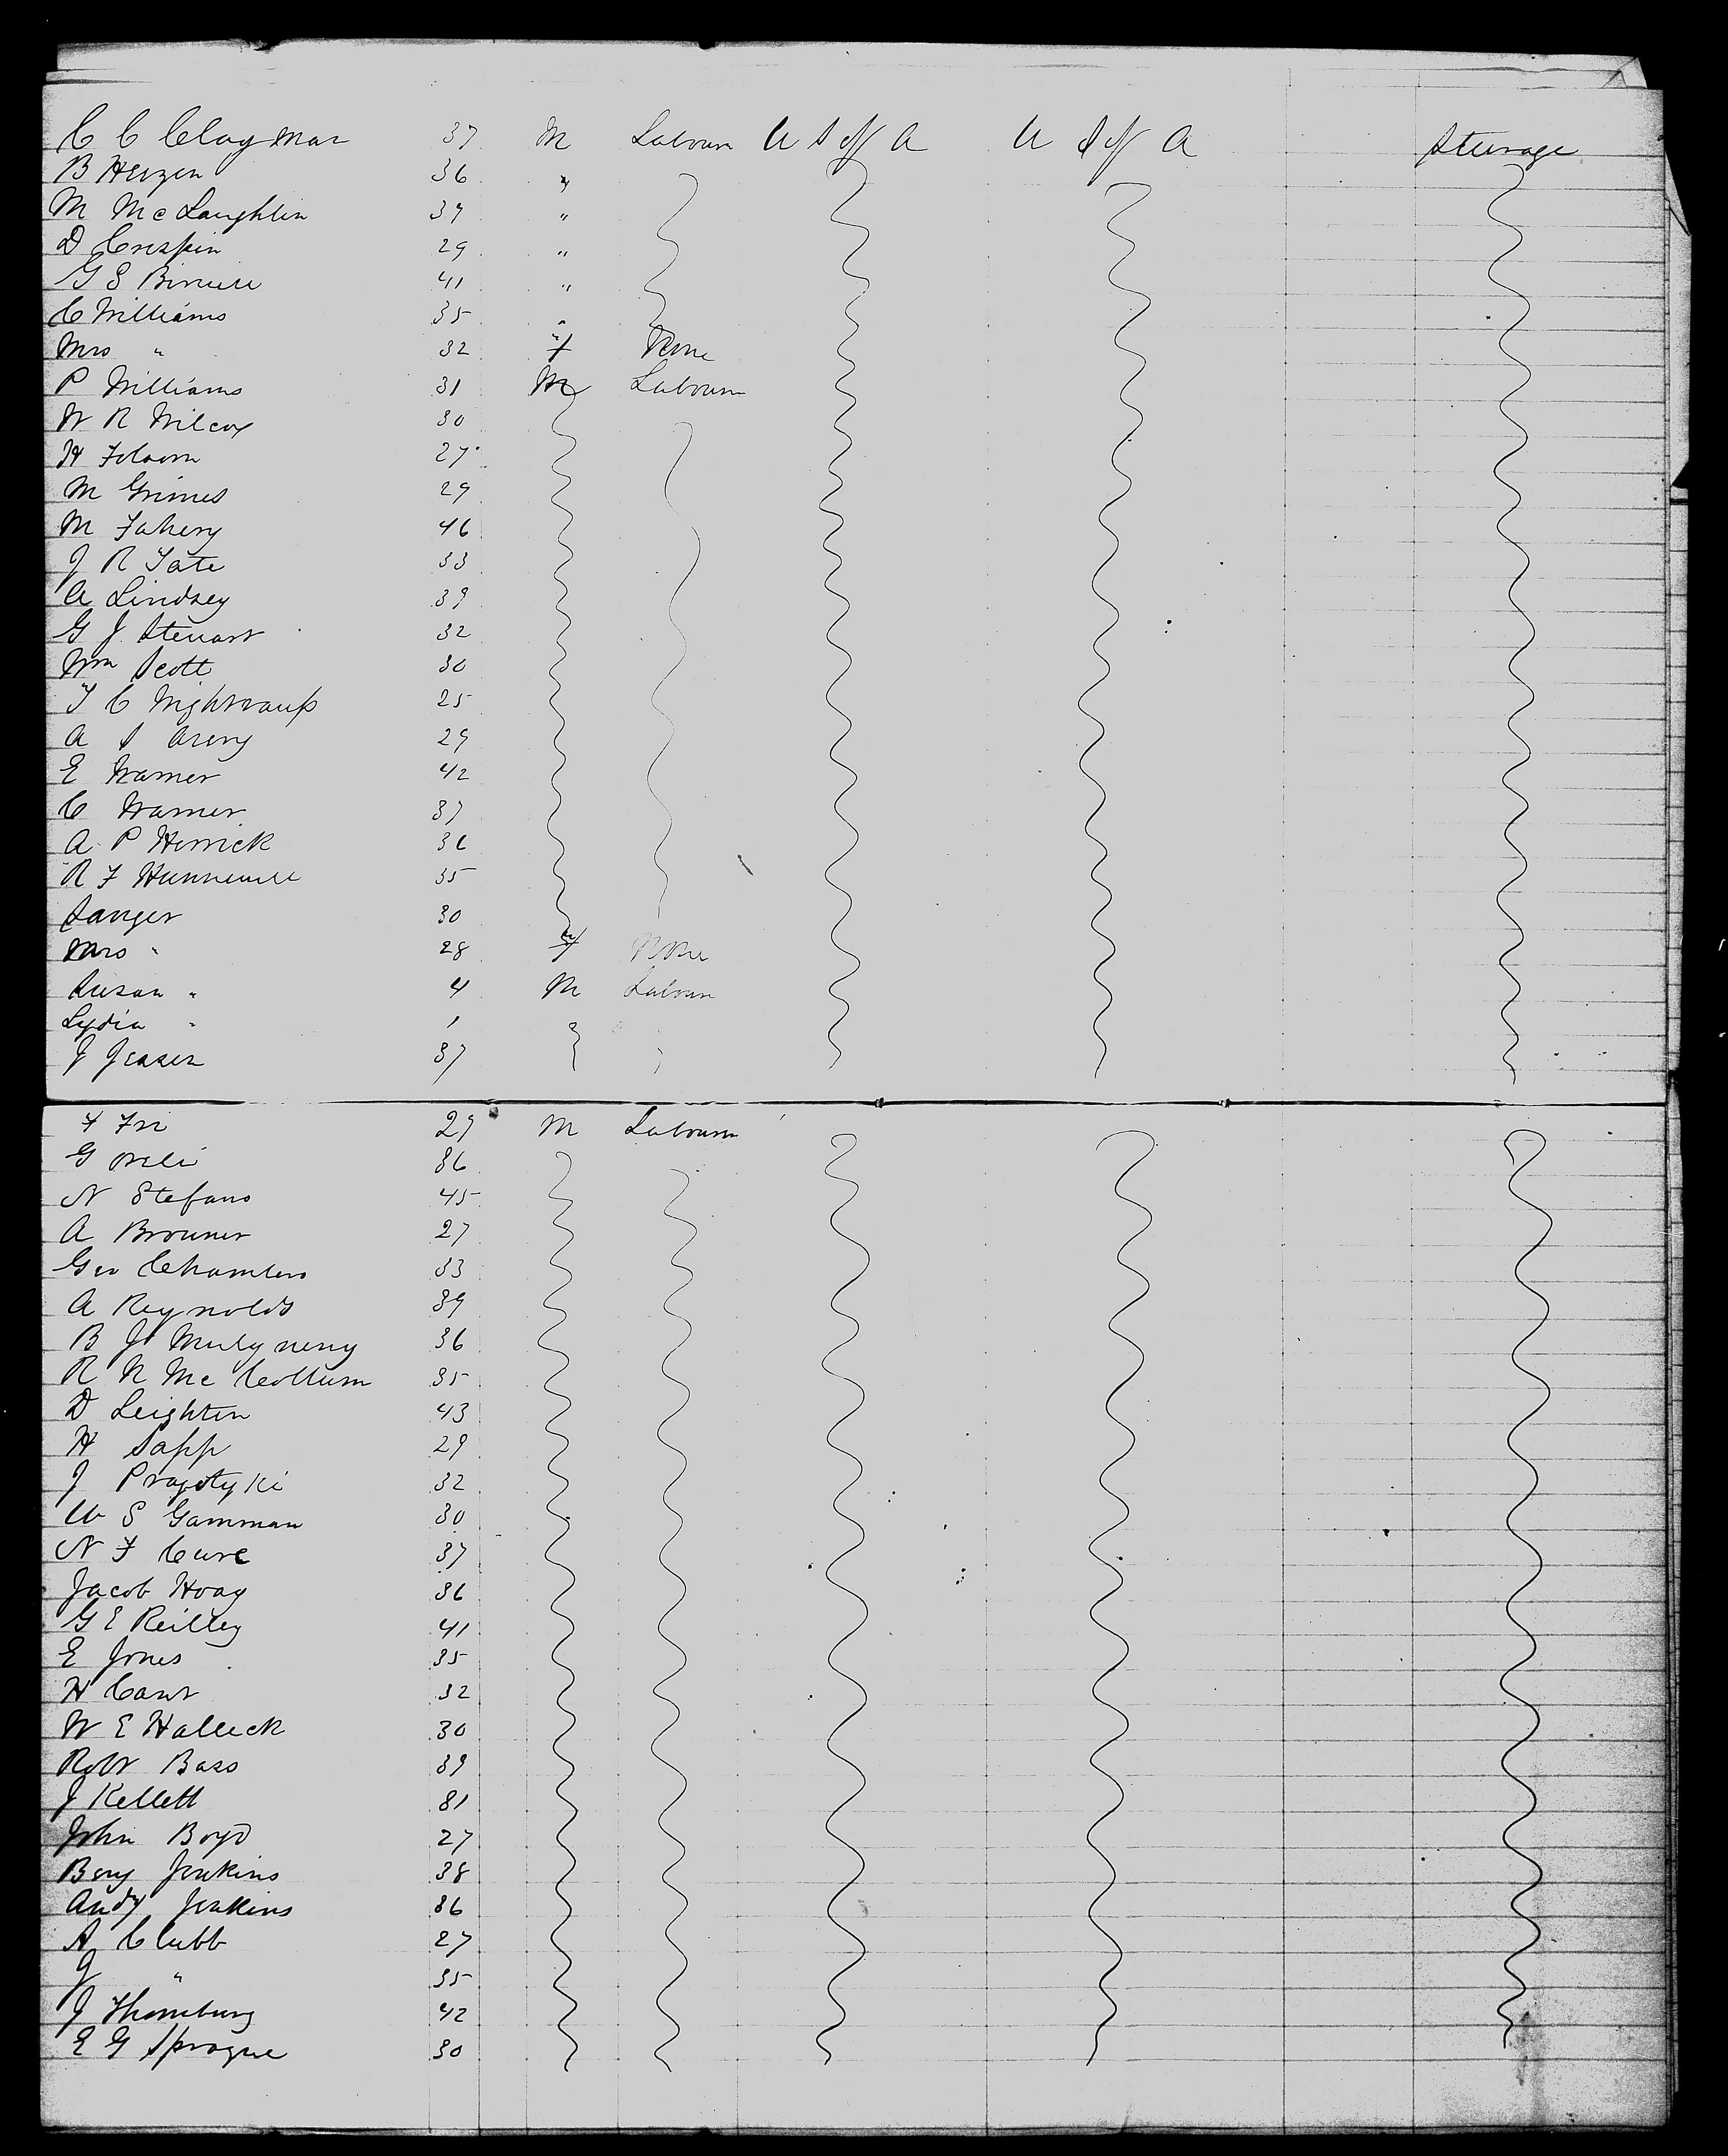 C C Clogman 37 M Laborer U S of A U S of A Steerage
B Herzen 36 "
M McLaughlin 39 "
D Crespin 29 "
G S 41 "
C Williams 35 "
Mrs " 32 f None
P Williams 31 M Laborer
W R Wilcox 30
H Folsom 27
M Grimes 29
M Fahery 46
J R Tate 33
A Lindsey 39
G J Stewart 32
Wm Scott 30
T C 25
A S Avery 29
E Warner 42
C Warner 37
A P Herrick 36
R F Hunnewell 35
Sanger 30
Mrs " 28 f None
Susan " 4 M Laborer
Lydia " 1
J Jensen 37
F Fri 29 M Laborer
G 36
N Stefano 45
A Brouner 27
Geo Chambers 33
A Reynolds 39
B J 36
R N McCollum 35
D Leighton 43
H Sapp 29
J 32
W S Gamman 30
N F Cure 37
Jacob Hoag 36
G E Reilley 41
E Jones 35
H Carr 32
W E Halleck 30
Robt Bass 39
J Kellett 31
John Boyd 27
Benj Jenkins 38
Andy Jenkins 36
A Clubb 27
J " 35
J Thornburg 42
E G Sprague 30